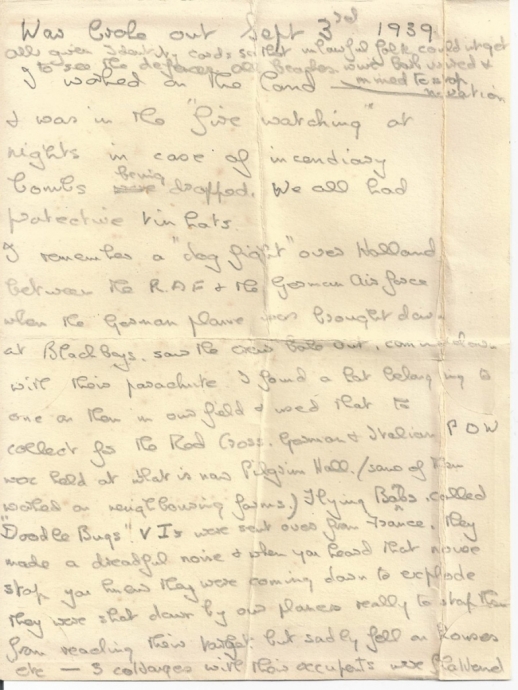 War broke out Sept 3rd 1939
all given Identity cards so that unlawful folk could not get
to see the defences all beaches were barb wired &
I worked on the land mined to stop invasion
I was in the "fire watching" at
nights in case of incendiary
bombs being dropped. We all had
protective tin hats.
I remember a "dog fight" over Holland
between the R.A.F & the German Air force
when the German plane was brought down
at Blackboys. saw the crew bale out, coming down
with their parachute I found a hat belonging to
one on them in our field & used that to
collect for the Red Cross. German & Italian POW
were held at what is now Pilgrim Hall. (some of them
worked on neighbouring farms.) Flying Bombs. called
"Doodle Bugs" V1s were sent over from France. They
made a dreadful noise & when you heard that noise
stop you knew they were coming down to explode
they were shot down by our planes really to stop them
from reaching their target. but sadly fell on houses
etc — 3 cottages with their occupants were flattened